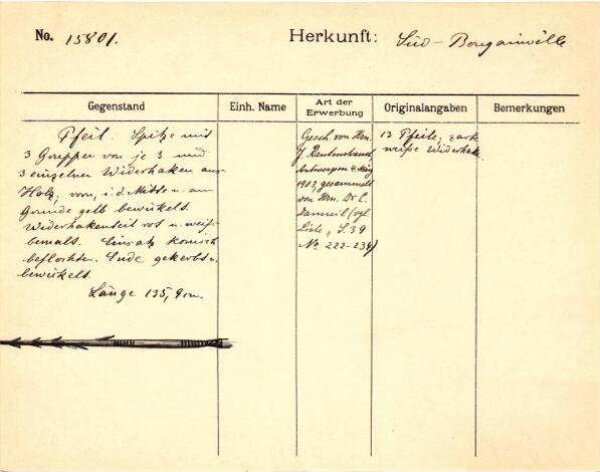 No. 15801.
Herkunft: Süd-Bougainville
Gegenstand
Einh. Name
Art der Erwerbung
Originalangaben
Bemerkungen
Pfeil. Spitze mit
3 Gruppen von je 3 und
3 einzelnen Widerhaken aus
Holz, vorn, i. d. Mitte u. am
Grunde gelb bewickelt.
Widerhakenteil rot u. weiß
bemalt. Einsatz konisch
beflochten. Ende gekerbt u.
bewickelt.
Länge 135,9 cm.
Gesch. von Hrn.
J. Rautenstrauch
Antwerpen 4. März
1913, gesammelt
von Hrn. Dr. E.
(vgl.
Liste, S. 39
No. 222-234)
13 Pfeile; zark
weiße Widerhak.